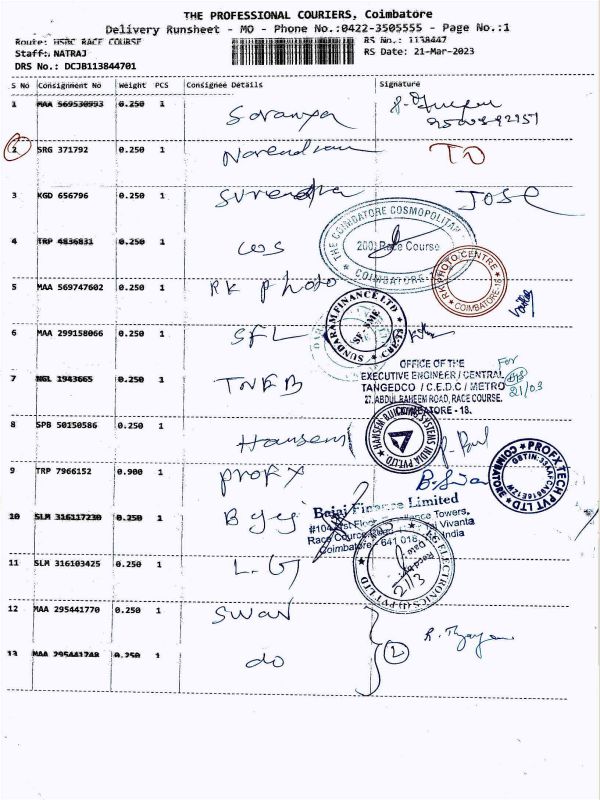 THE PROFESSIONAL COURIERS, Coimbatore
Delivery Runsheet - MO - Phone No.:0422-3505555 - Page No.:1
Route: HSBC RACE COURSE RS No.: 1138447
Staff: NATRAJ RS Date: 21-Mar-2023
DRS No.: DCJB113844701
S No Consignment No Weight PCS Consignee Details Signature
1 MAA 569530993 0.250 1
2 SRG 371792 0.250 1 Narendran TO
3 KGD 656796 0.250 1 Surendra JOSE
THE COIMBATORE COSMOPOLITAN
200, Race Course
COIMBATORE
4 TRP 4836831 0.250 1 cos
5 MAA 569747602 0.250 1 RK photo
RK PHOTO CENTRE
COIMBATORE-18
SUNDARAM FINANCE LTD
SF-SME
6 MAA 299158066 0.250 1 SFL
OFFICE OF THE
EXECUTIVE ENGINEER / CENTRAL
TANGEDCO / C.E.D.C / METRO
27, ABDUL RAHEEM ROAD, RACE COURSE,
COIMBATORE - 18.
For
21/03
7 NGL 1943665 0.250 1 TNEB
8 SPB 50150586 0.250 1 Hansem
HANSEM BUILDING SYSTEMS INDIA PVT LTD
9 TRP 7966152 0.900 1 profx
PROFX TECH PVT LTD
COIMBATORE
Bajaj Finance Limited
Race Course
Coimbatore - 641 018 India
Towers,
Vivanta
10 SLM 316117230 0.250 1 Bajaj
LG ELECTRONICS (I) PVT LTD
21/3
11 SLM 316103425 0.250 1 L.G
12 MAA 295441770 0.250 1 SWAN
2
13 MAA 295441748 0.250 1 do